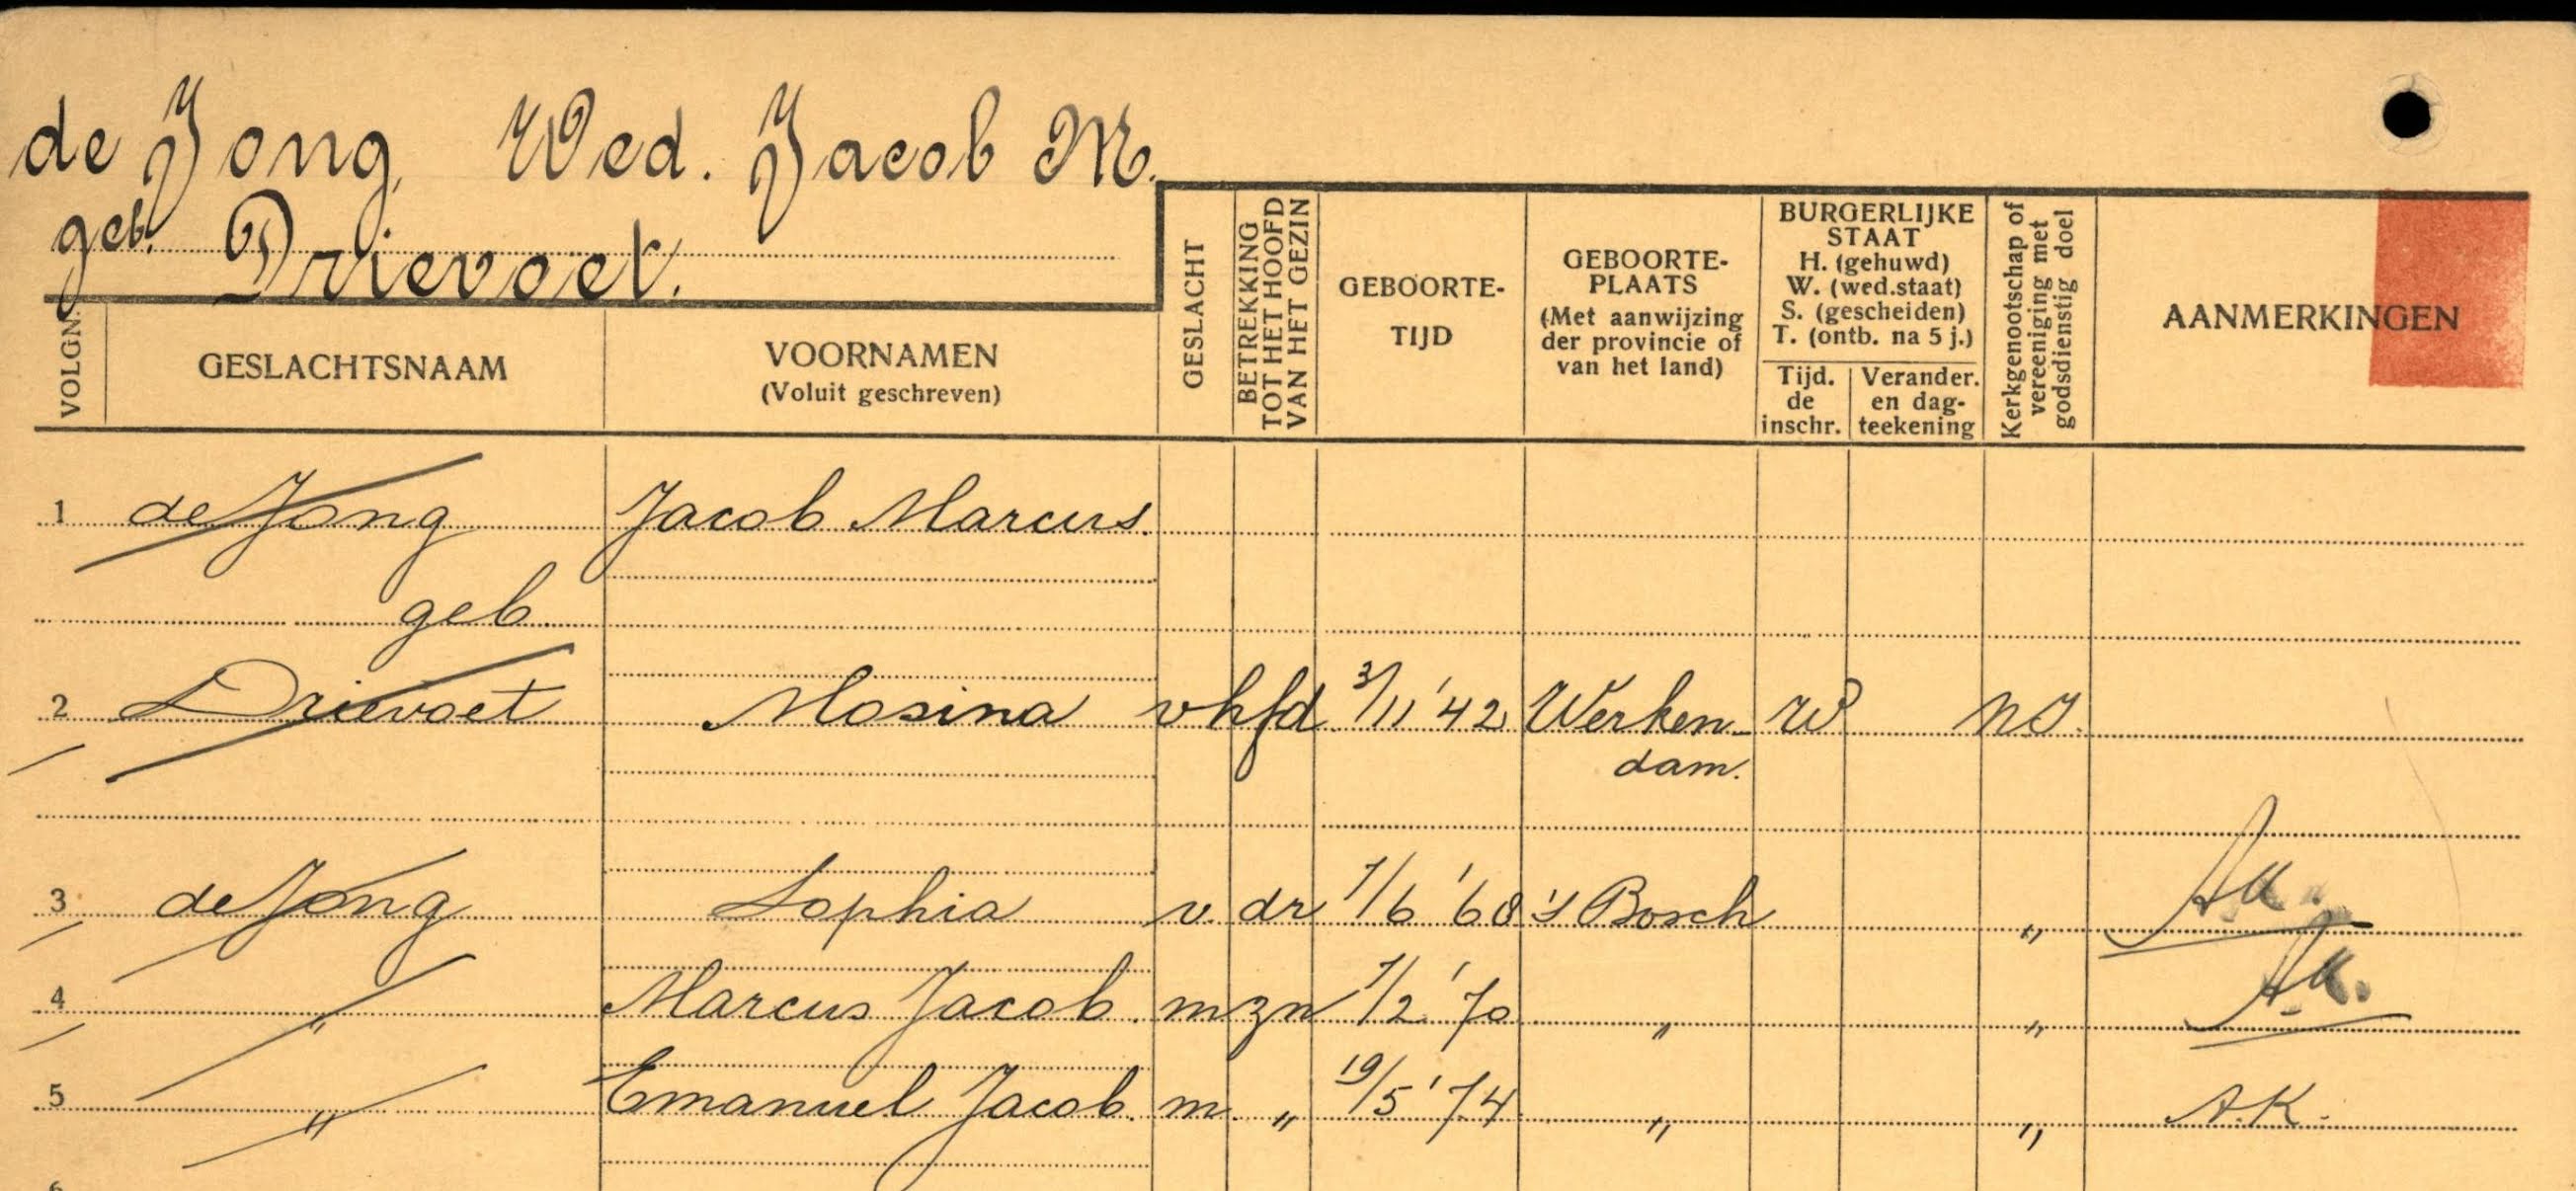 de Jong, Wed. Jacob M.
geb. Drievoet.
VOLGN. GESLACHTSNAAM
VOORNAMEN
(Voluit geschreven)
GESLACHT
BETREKKING
TOT HET HOOFD
VAN HET GEZIN
GEBOORTE-
TIJD
GEBOORTE-
PLAATS
(Met aanwijzing
der provincie of
van het land)
BURGERLIJKE
STAAT
H. (gehuwd)
W. (wed.staat)
S. (gescheiden)
T. (ontb. na 5 j.)
Tijd.
de
inschr.
Verander.
en dag-
teekening
Kerkgenootschap of
vereeniging met
godsdienstig doel
AANMERKINGEN
1 de Jong Jacob Marcus.
geb.
2 Drievoet Mosina v hfd 3/11 '42 Werken- W NI.
dam.
3 de Jong Sophia v. dr 1/6 '68 's Bosch „
4 „ Marcus Jacob. m zn 1/2 '70 „ „ A.K.
5 „ Emanuel Jacob. m. „ 19/5 '74 „ „ A.K.